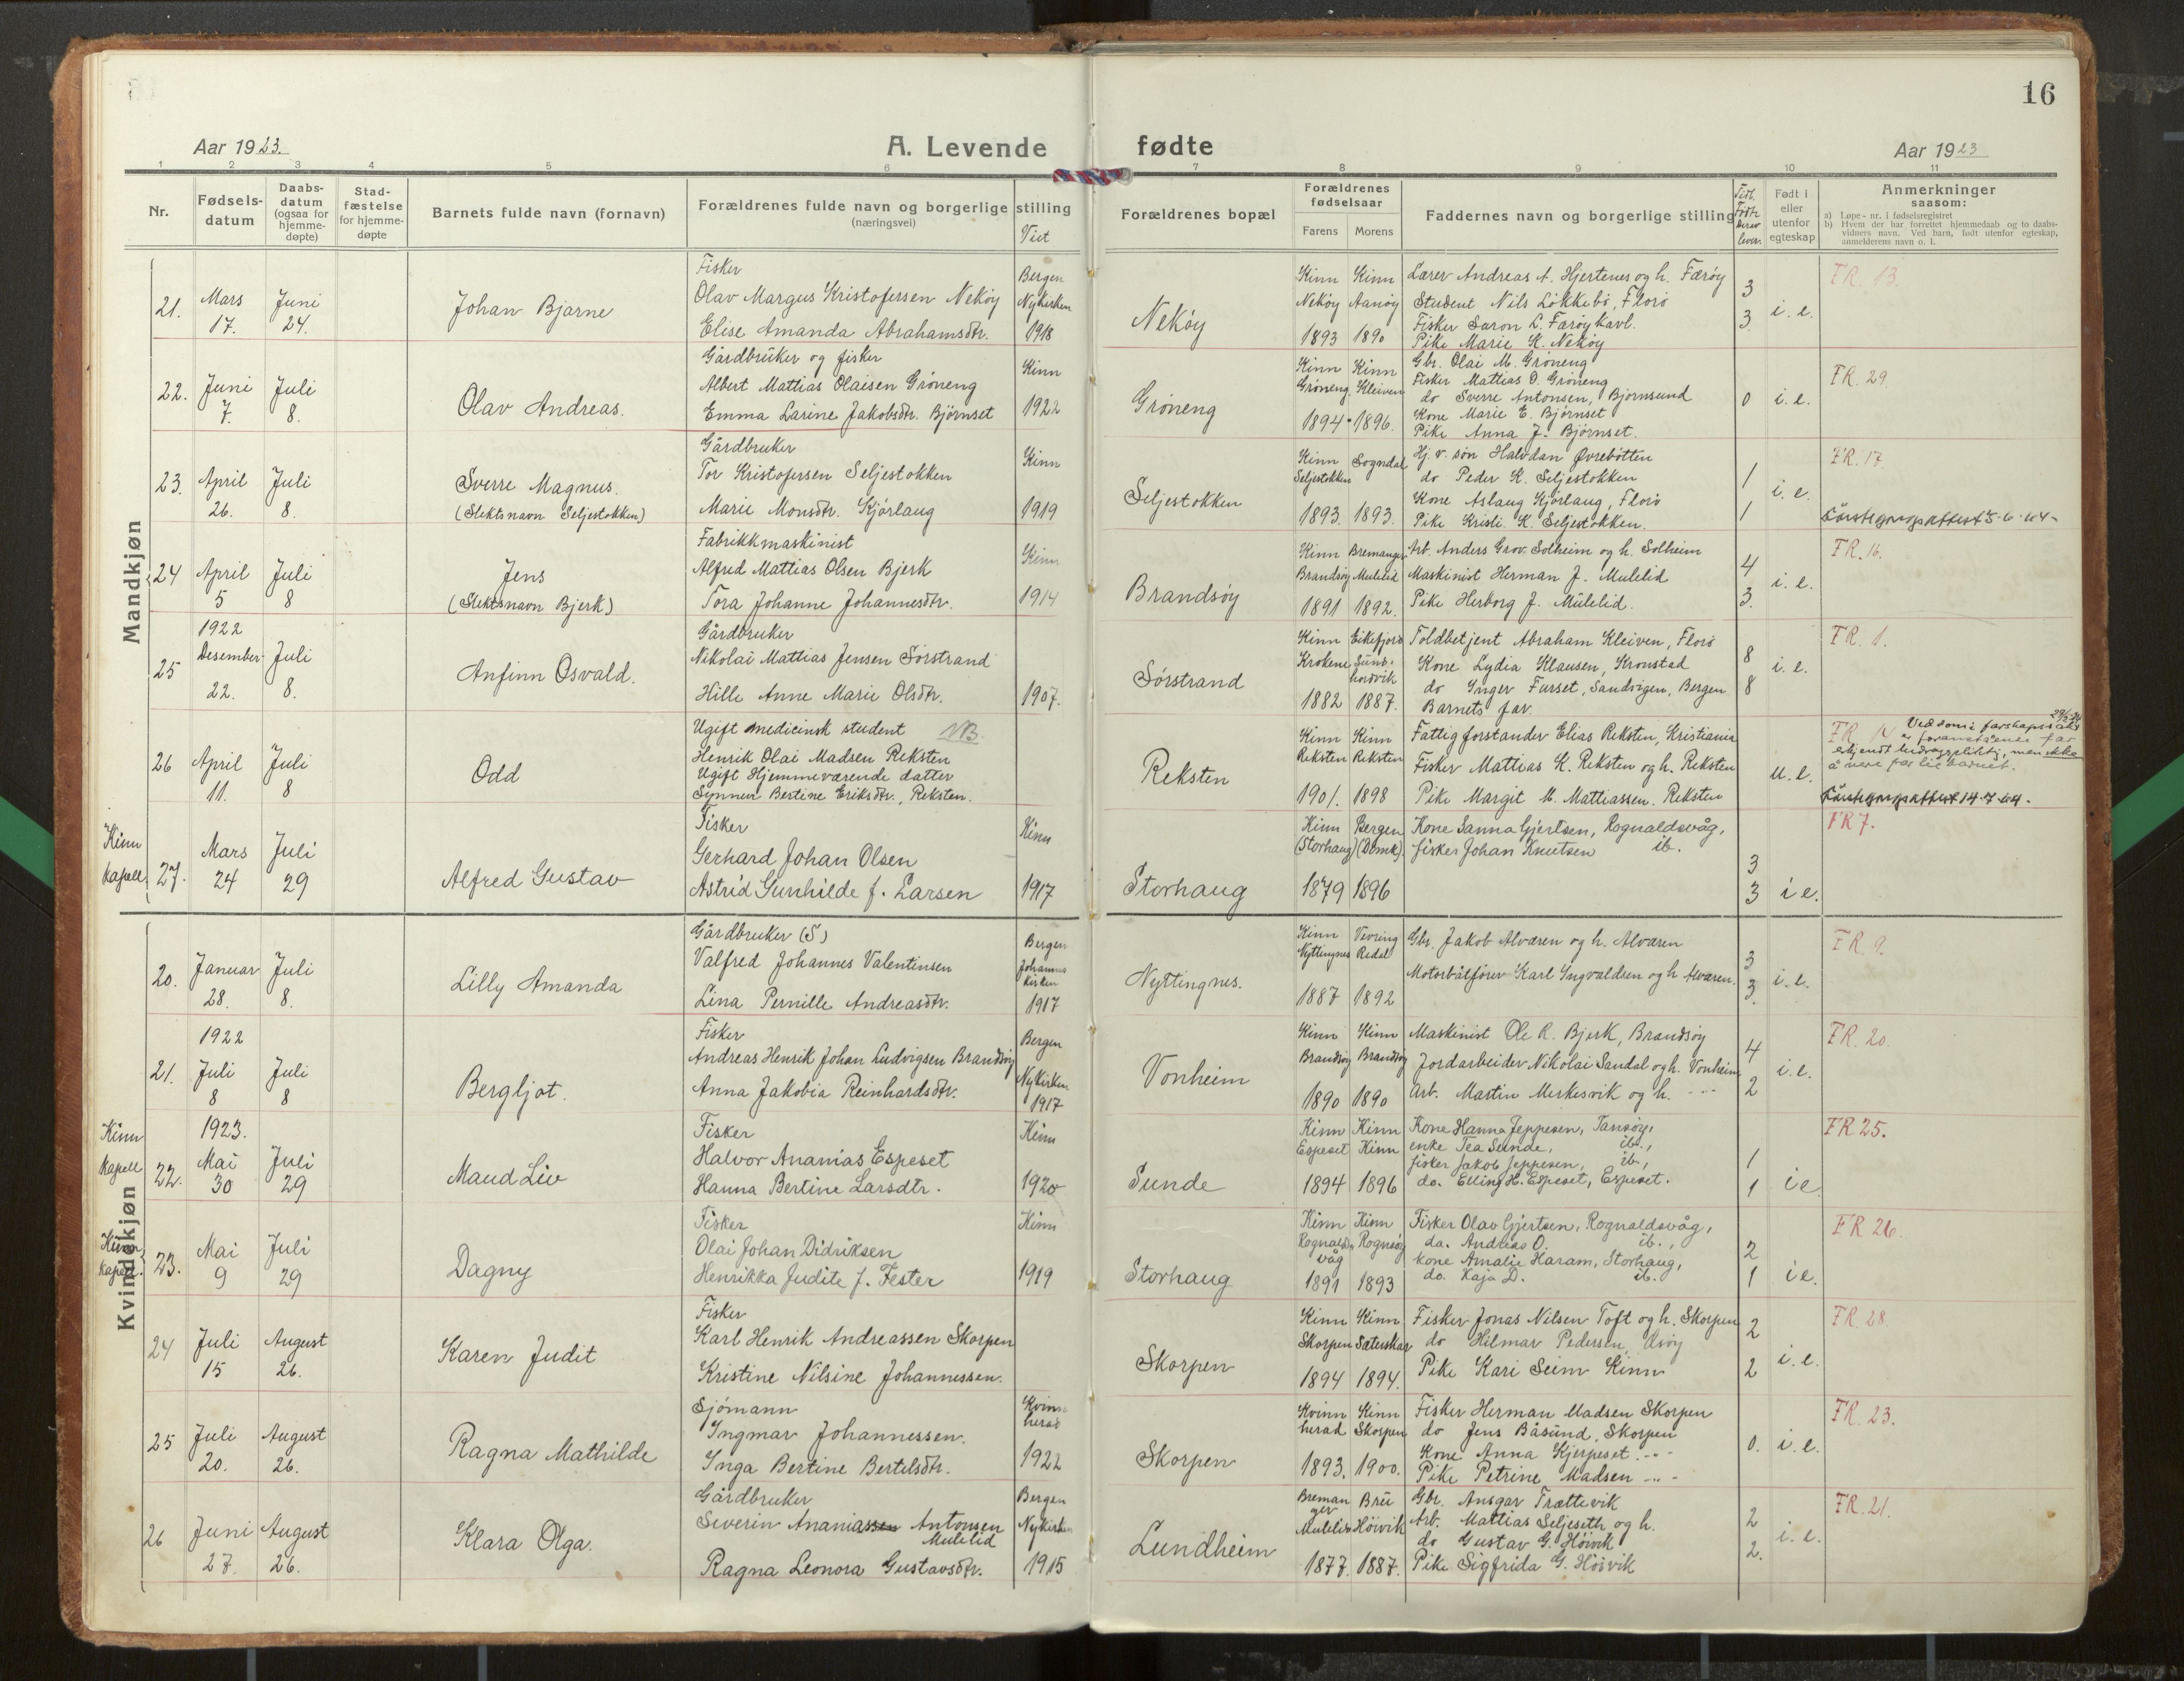 16
Aar 1923.
A. Levende fødte
Aar 1923
1 2 3 4 5 6 7 8 9 10 11
Nr.
Fødsels-
datum
Daabs-
datum
(ogsaa for
hjemme-
døpte)
Stad-
fæstelse
for hjemme-
døpte
Barnets fulde navn (fornavn)
Forældrenes fulde navn og borgerlige stilling
(næringsvei)
Viet
Forældrenes bopæl
Forældrenes
fødselsaar
Farens Morens
Faddernes navn og borgerlige stilling
Tidl.
Født.
Derav
lever.
Født i
eller
utenfor
egteskap
Anmerkninger
saasom:
a) Løpe-nr. i fødselsregistret
b) Hvem der har forrettet hjemmedaab og to daabs-
vidners navn. Ved barn, født utenfor egteskap,
anmelderens navn o. l.
Mandkjøn
21.
Mars
17.
Juni
24.
Johan Bjarne
Fisker
Olav Margus Kristofersen Nekøy
Elise Amanda Abrahamsdtr.
Bergen
Nykirken
1918
Nekøy
Kinn
Nekøy
1893
Kinn
Aanøy
1890
Lærer Andreas A. Hjertenes og h. Færøy
Student Nils Løkkebø, Florø
Fisker Saron L. Færøykavl.
Pike Marie K. Nekøy
3
3.
i. e.
FR. 13.
22.
Juni
7.
Juli
8.
Olav Andreas.
Gårdbruker og fisker
Albert Mattias Olaisen Grøneng
Emma Larine Jakobsdtr. Bjørnset
Kinn
1922
Grøneng
Kinn
Grøneng
1894
Kinn
Kleiven
1896.
Gbr. Olai M. Grøneng
Fisker Mattias O. Grøneng
do Sverre Antonsen, Bjørnsund
Kone Marie E. Bjørnset
Pike Anna J. Bjørnset.
0
i. e.
FR. 29.
23.
April
26.
Juli
8.
Sverre Magnus.
(Slektsnavn Seljestokken)
Gårdbruker
Tor Kristofersen Seljestokken
Marie Monsdtr. Kjørlaug
Kinn
1919
Seljestokken
Kinn
Seljestokken
1893.
Sogndal
1893.
Hj. v. søn Halvdan Øvrebotten
do Peder K. Seljestokken
Kone Aslaug Kjørlaug, Florø
Pike Kristi K. Seljestokken.
1
1
i. e.
FR. 17.
Førstegangsattest 5-6-44-
24
April
5
Juli
8
Jens
(Slektsnavn Bjerk)
Fabrikkmaskinist
Alfred Mattias Olsen Bjerk
Tora Johanne Johannesdtr.
Kinn
1914
Brandsøy
Kinn
Brandsøy
1891
Bremanger
Mulelid
1892.
Arb. Anders Grov. Solheim og h. Solheim
Maskinist Herman J. Mulelid
Pike Herborg J. Mulelid.
4
3.
i. e.
FR. 16.
25
1922
Desember
22.
Juli
8.
Anfinn Osvald.
Gårdbruker
Nikolai Mattias Jensen Sørstrand
Hille Anne Marie Olsdtr.
1907.
Sørstrand
Kinn
Krokene
1882
Eikefjord
Sund-
hordvik
1887.
Toldbetjent Abraham Kleiven, Florø
Kone Lydia Klausen, Kronstad
do Ynger Furset, Sandvigen, Bergen
Barnets far.
8
8
i. e.
FR. 1.
26
April
11.
Juli
8
Odd
Ugift medicinsk student NB.
Henrik Olai Madsen Reksten
Ugift Hjemmeværende datter
Synnev Bertine Eriksdtr., Reksten.
Reksten
Kinn
Reksten
1901.
Kinn
Reksten
1898
Fattigforstander Elias Reksten, Kristiania
Fisker Mattias K. Reksten og h. Reksten
Pike Margit M. Mattiassen. Reksten
u. e.
FR. 14
Ved dom i farskapssak
er foranstående far
erkjendt bidragspliktig, men ikke
å være far til barnet.
Førstegangsattest 14-7-44.
Kinn
kapell
27.
Mars
24
Juli
29
Alfred Gustav
Fisker
Gerhard Johan Olsen
Astrid Gunhilde f. Larsen
Kinn
1917
Storhaug
Kinn
(Storhaug)
1879
Bergen
(Domk)
1896
Kone Sanna Gjertsen, Rognaldsvåg,
fisker Johan Knutsen ib.
3
3
i e.
FR 7.
Kvindekjøn
20.
Januar
28.
Juli
8.
Lilly Amanda
Gårdbruker (S)
Valfred Johannes Valentinsen
Lina Pernille Andreasdtr.
Bergen
Johannes
kirken
1917
Nyttingnes.
Kinn
Nyttingnes
1887
Vevring
Redal
1892
Gbr. Jakob Alværen og h. Alværen
Motorbåtfører Karl Yngvaldsen og h. Alværen.
3
3.
i. e.
FR. 9.
21.
1922
Juli
8
Juli
8
Bergljot.
Fisker
Andreas Henrik Johan Ludvigsen Brandsøy
Anna Jakobia Reinhardsdtr.
Bergen
Nykirken
1917
Vonheim
Kinn
Brandsøy
1890
Kinn
Brandsøy
1890
Maskinist Ole R. Bjerk, Brandsøy
Jordarbeider Nikolai Sandal og h. Vonheim
Arb. Martin Merkesvik og h. - - -
4
2
i. e.
FR. 20.
Kinn
Kapell
22.
1923.
Mai
30
Juli
29
Maud Liv
Fisker
Halvor Ananias Espeset
Hanna Bertine Larsdtr.
Kinn
1920
Sunde
Kinn
Espeset
1894
Kinn
Kinn
1896
Kone Hanna Jeppesen, Tansøy,
enke Tea Sunde, ib.,
fisker Jakob Jeppesen, ib.,
do. Elling H. Espeset, Espeset.
1
1
i e
FR 25.
Kinn
kapell.
23.
Mai
9
Juli
29
Dagny
Fisker
Olai Johan Didriksen
Henrikka Judite f. Fester
Kinn
1919
Storhaug
Kinn
Rognalds-
våg
1891
Kinn
Rognsøy
1893
Fisker Olav Gjertsen, Rognaldsvåg,
do. Andreas O. ib.,
kone Amalie Haram, Storhaug,
do. Kaja D. ib.
2
1
i e.
FR 26.
24
Juli
15
August
26.
Karen Judit
Fisker
Karl Henrik Andreassen Skorpen
Kristine Nilsine Johannessen.
Skorpen
Kinn
Skorpen
1894
Kinn
Sæterskar
1894.
Fisker Jonas Nilsen Toft og h. Skorpen
do Hilmar Pedersen,
Pike Kari Seim Kinn
2
2
i. e.
FR. 28.
25
Juli
20.
August
26.
Ragna Mathilde
Sjømann
Yngmar Johannessen.
Ynga Bertine Bertelsdtr.
Kvinn
herad
1922
Skorpen
Kvinn
herad
1893.
Kinn
Skorpen
1900.
Fisker Herman Madsen Skorpen
do Jens Båsund, Skorpen
Kone Anna Kjerpeset. - - -
Pike Petrine Madsen - - -
0.
i. e.
FR. 23.
26
Juni
27.
August
26.
Klara Olga.
Gårdbruker
Severin Ananiassen Antonsen
Mulelid
Ragna Leonora Gustavsdtr.
Bergen
Nykirken
1915
Lundheim
Breman
ger
Mulelid
1877.
Bru
Høivik
1887.
Gbr. Ansgar Trættevik
Arb. Mattias Seljeseth og h.
do Gustav G. Høivik
Pike Sigfrida G. Høivik
2
2.
i. e.
FR. 21.